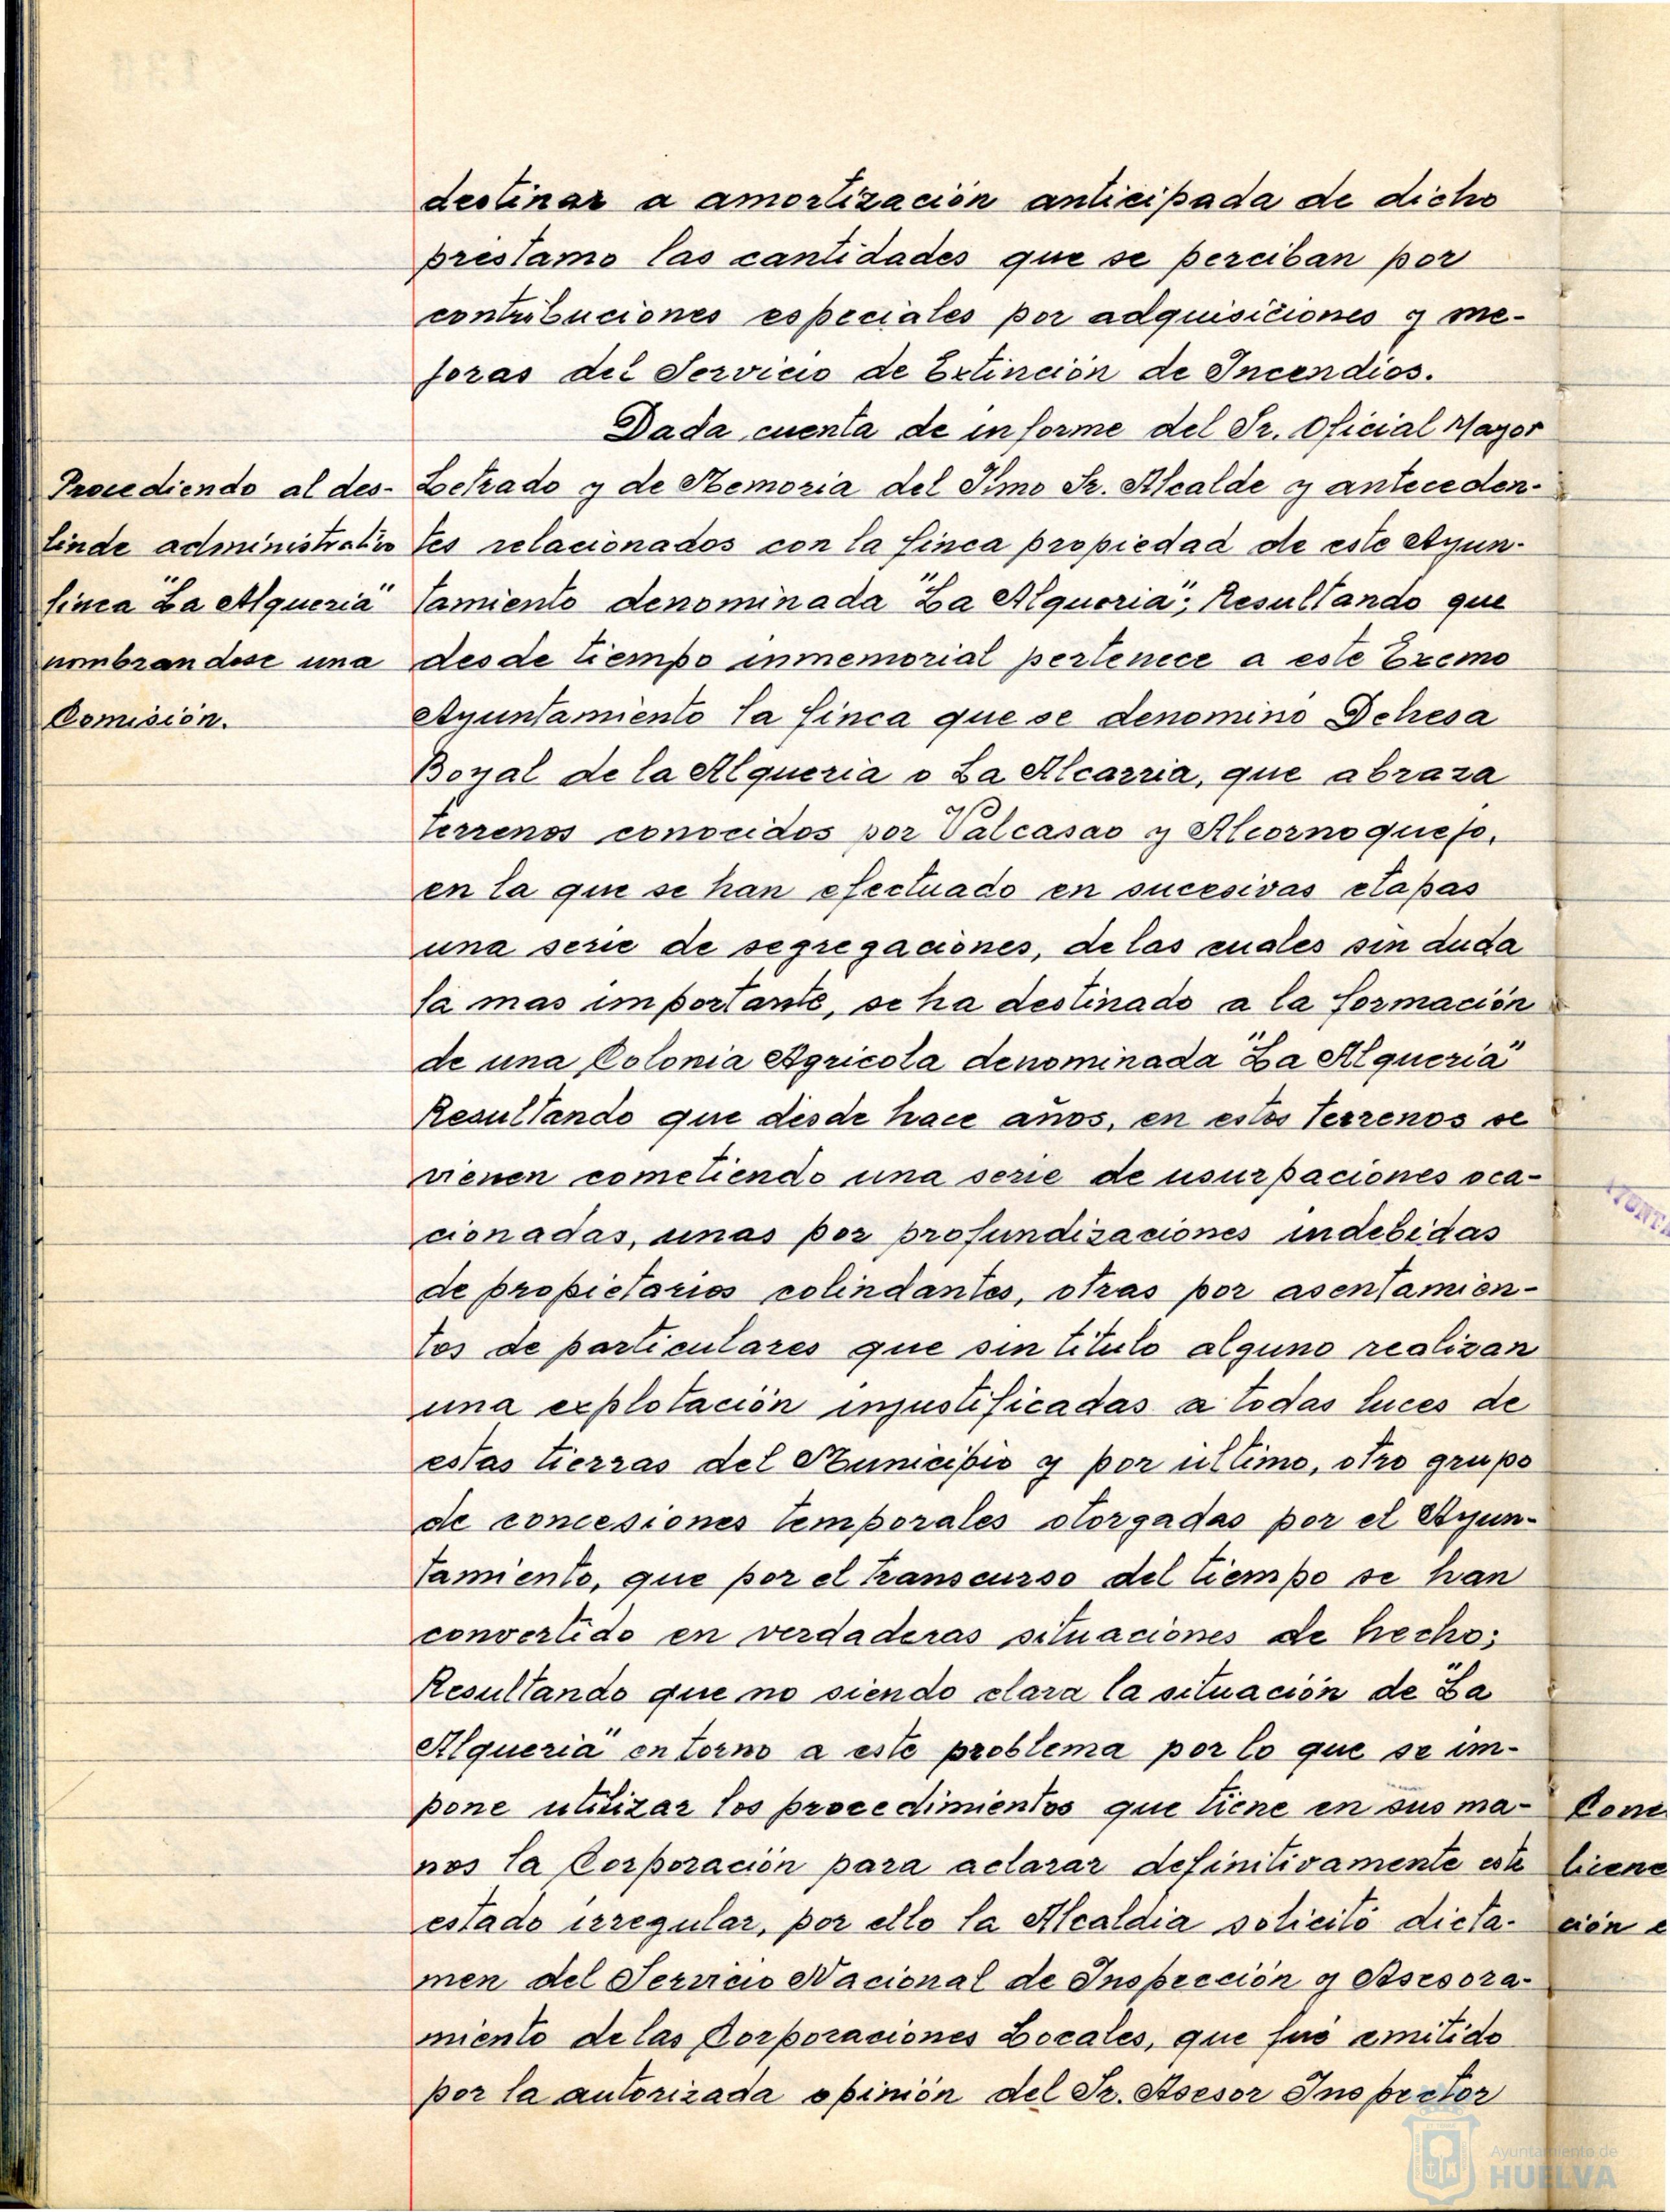 destinar a amortización anticipada de dicho
préstamo las cantidades que se perciban por
contribuciones especiales por adquisiciones y me-
joras del Servicio de Extinción de Incendios.
Dada cuenta de informe del Sr. Oficial Mayor
Procediendo al des-
linde administrativo
finca "La Alqueria"
nombrandose una
Comisión.
Letrado y de Memoria del Ilmo Sr. Alcalde y anteceden-
tes relacionados con la finca propiedad de este Ayun-
tamiento denominada "La Alqueria"; Resultando que
desde tiempo inmemorial pertenece a este Excmo
Ayuntamiento la finca que se denominó Dehesa
Boyal de la Alqueria o La Alcarria, que abraza
terrenos conocidos por Valcasao y Alcornoquejo,
en la que se han efectuado en sucesivas etapas
una serie de segregaciones, de las cuales sin duda
la mas importante, se ha destinado a la formación
de una Colonia Agricola denominada "La Alqueria"
Resultando que desde hace años, en estos terrenos se
vienen cometiendo una serie de usurpaciones oca-
cionadas, unas por profundizaciones indebidas
de propietarios colindantes, otras por asentamien-
tos de particulares que sin titulo alguno realizan
una explotación injustificadas a todas luces de
estas tierras del Municipio y por ultimo, otro grupo
de concesiones temporales otorgadas por el Ayun-
tamiento, que por el transcurso del tiempo se han
convertido en verdaderas situaciones de hecho;
Resultando que no siendo clara la situación de "La
Alqueria" en torno a este problema por lo que se im-
pone utilizar los procedimientos que tiene en sus ma-
nos la Corporación para aclarar definitivamente este
estado irregular, por ello la Alcaldia solicitó dicta-
men del Servicio Nacional de Inspección y Asesora-
miento de las Corporaciones Locales, que fué emitido
por la autorizada opinión del Sr. Asesor Inspector
Conc
licenc
ción e
Ayuntamiento de
HUELVA